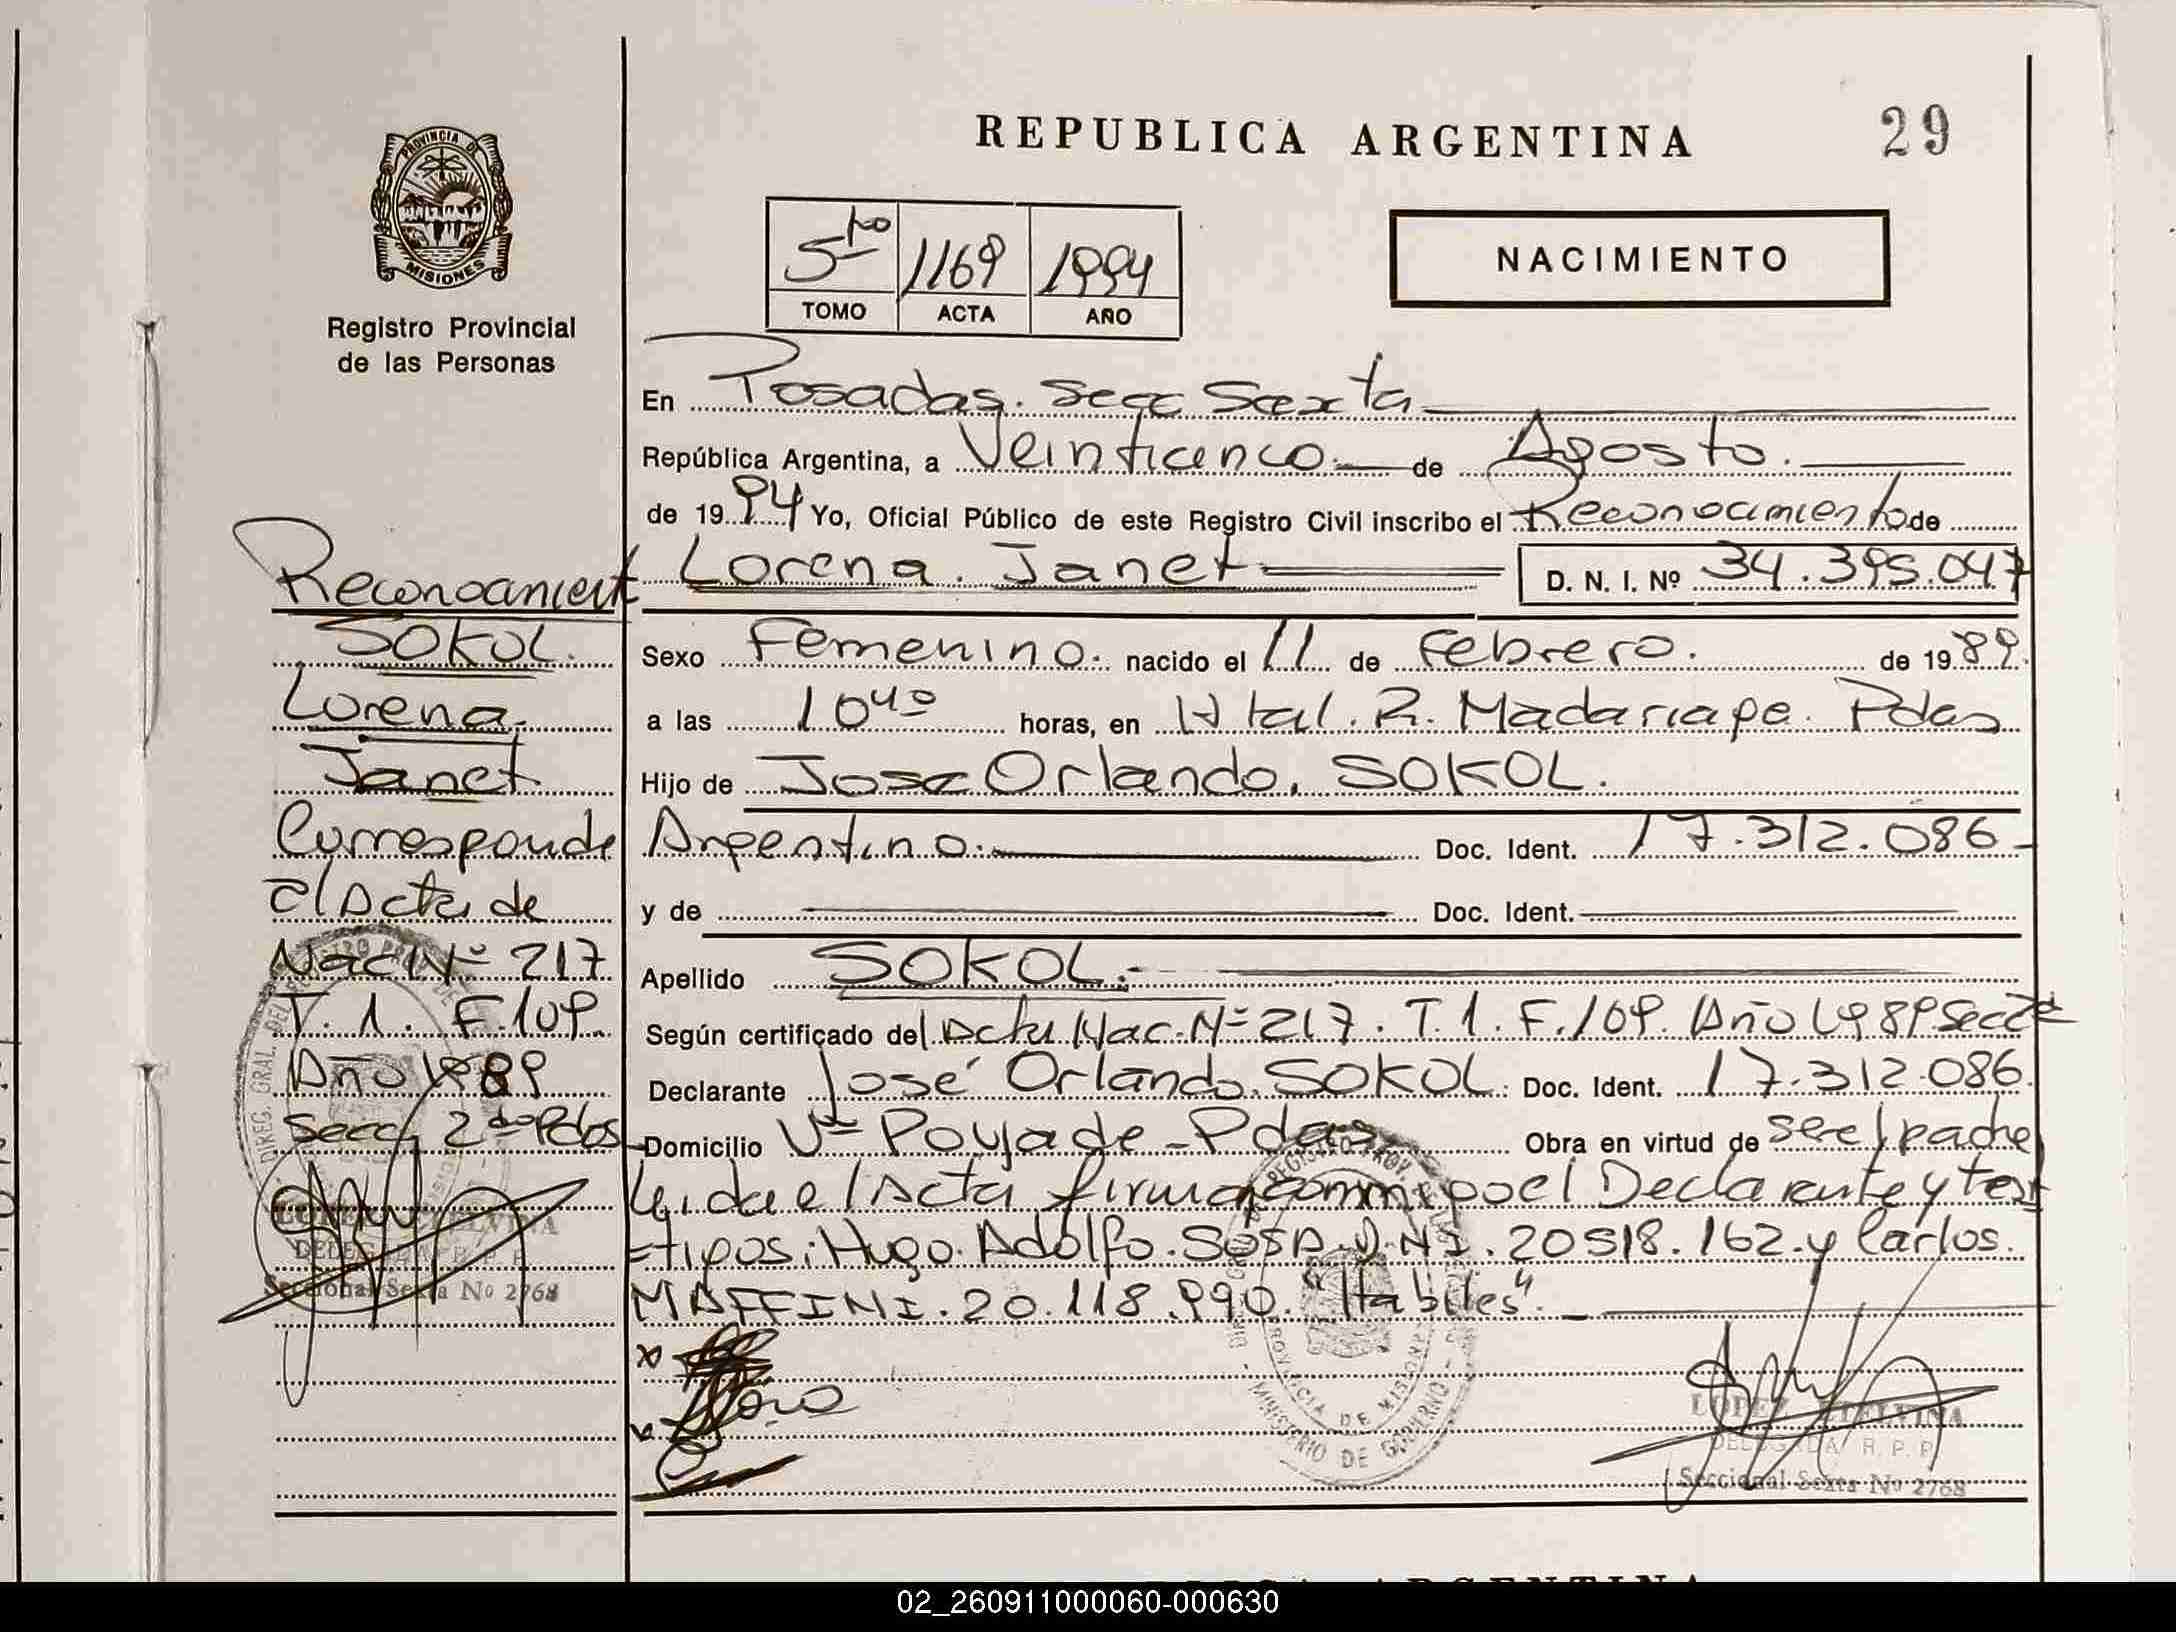 REPUBLICA ARGENTINA
29
PROVINCIA DE
MISIONES
Registro Provincial
de las Personas
5to 1169 1994
TOMO ACTA AÑO
NACIMIENTO
En Posadas. Secc Sexta
República Argentina, a Veinticinco de Agosto.
de 1994 Yo, Oficial Público de este Registro Civil inscribo el Reconocimiento de
Lorena. Janet D. N. I. Nº 34.395.047
Sexo Femenino. nacido el 11 de Febrero. de 1989.
a las 10 40 horas, en Htal. R. Madariaga. Pdas
Hijo de Jose Orlando. SOKOL.
Argentino. Doc. Ident. 17.312.086
y de Doc. Ident.
Apellido SOKOL.
Según certificado del Acta Nac. Nº 217. T. 1. F. 109. Año 1989 Secc 2da
Declarante José Orlando. SOKOL. Doc. Ident. 17.312.086.
Domicilio Vª Poujade - Pdas Obra en virtud de ser el padre
Leida el Acta firman conmigo el Declarante y test
tigos: Hugo. Adolfo. SOSA. D.NI. 20518.162. y Carlos.
MAFFINI. 20.118.990. "Habiles".
Reconocimient
SOKOL.
Lorena.
Janet
Corresponde
al Acta de
Nac Nº 217
T. 1. F. 109.
Año 1989
Secc 2da Pdas
LOPEZ ETELVINA
DELEGADA R. P. P.
Seccional Sexta Nº 2768
MINISTERIO DE GOBIERNO
PROVINCIA DE MISIONES
LOPEZ ETELVINA
DELEGADA R. P. P.
Seccional Sexta Nº 2768
02_260911000060-000630